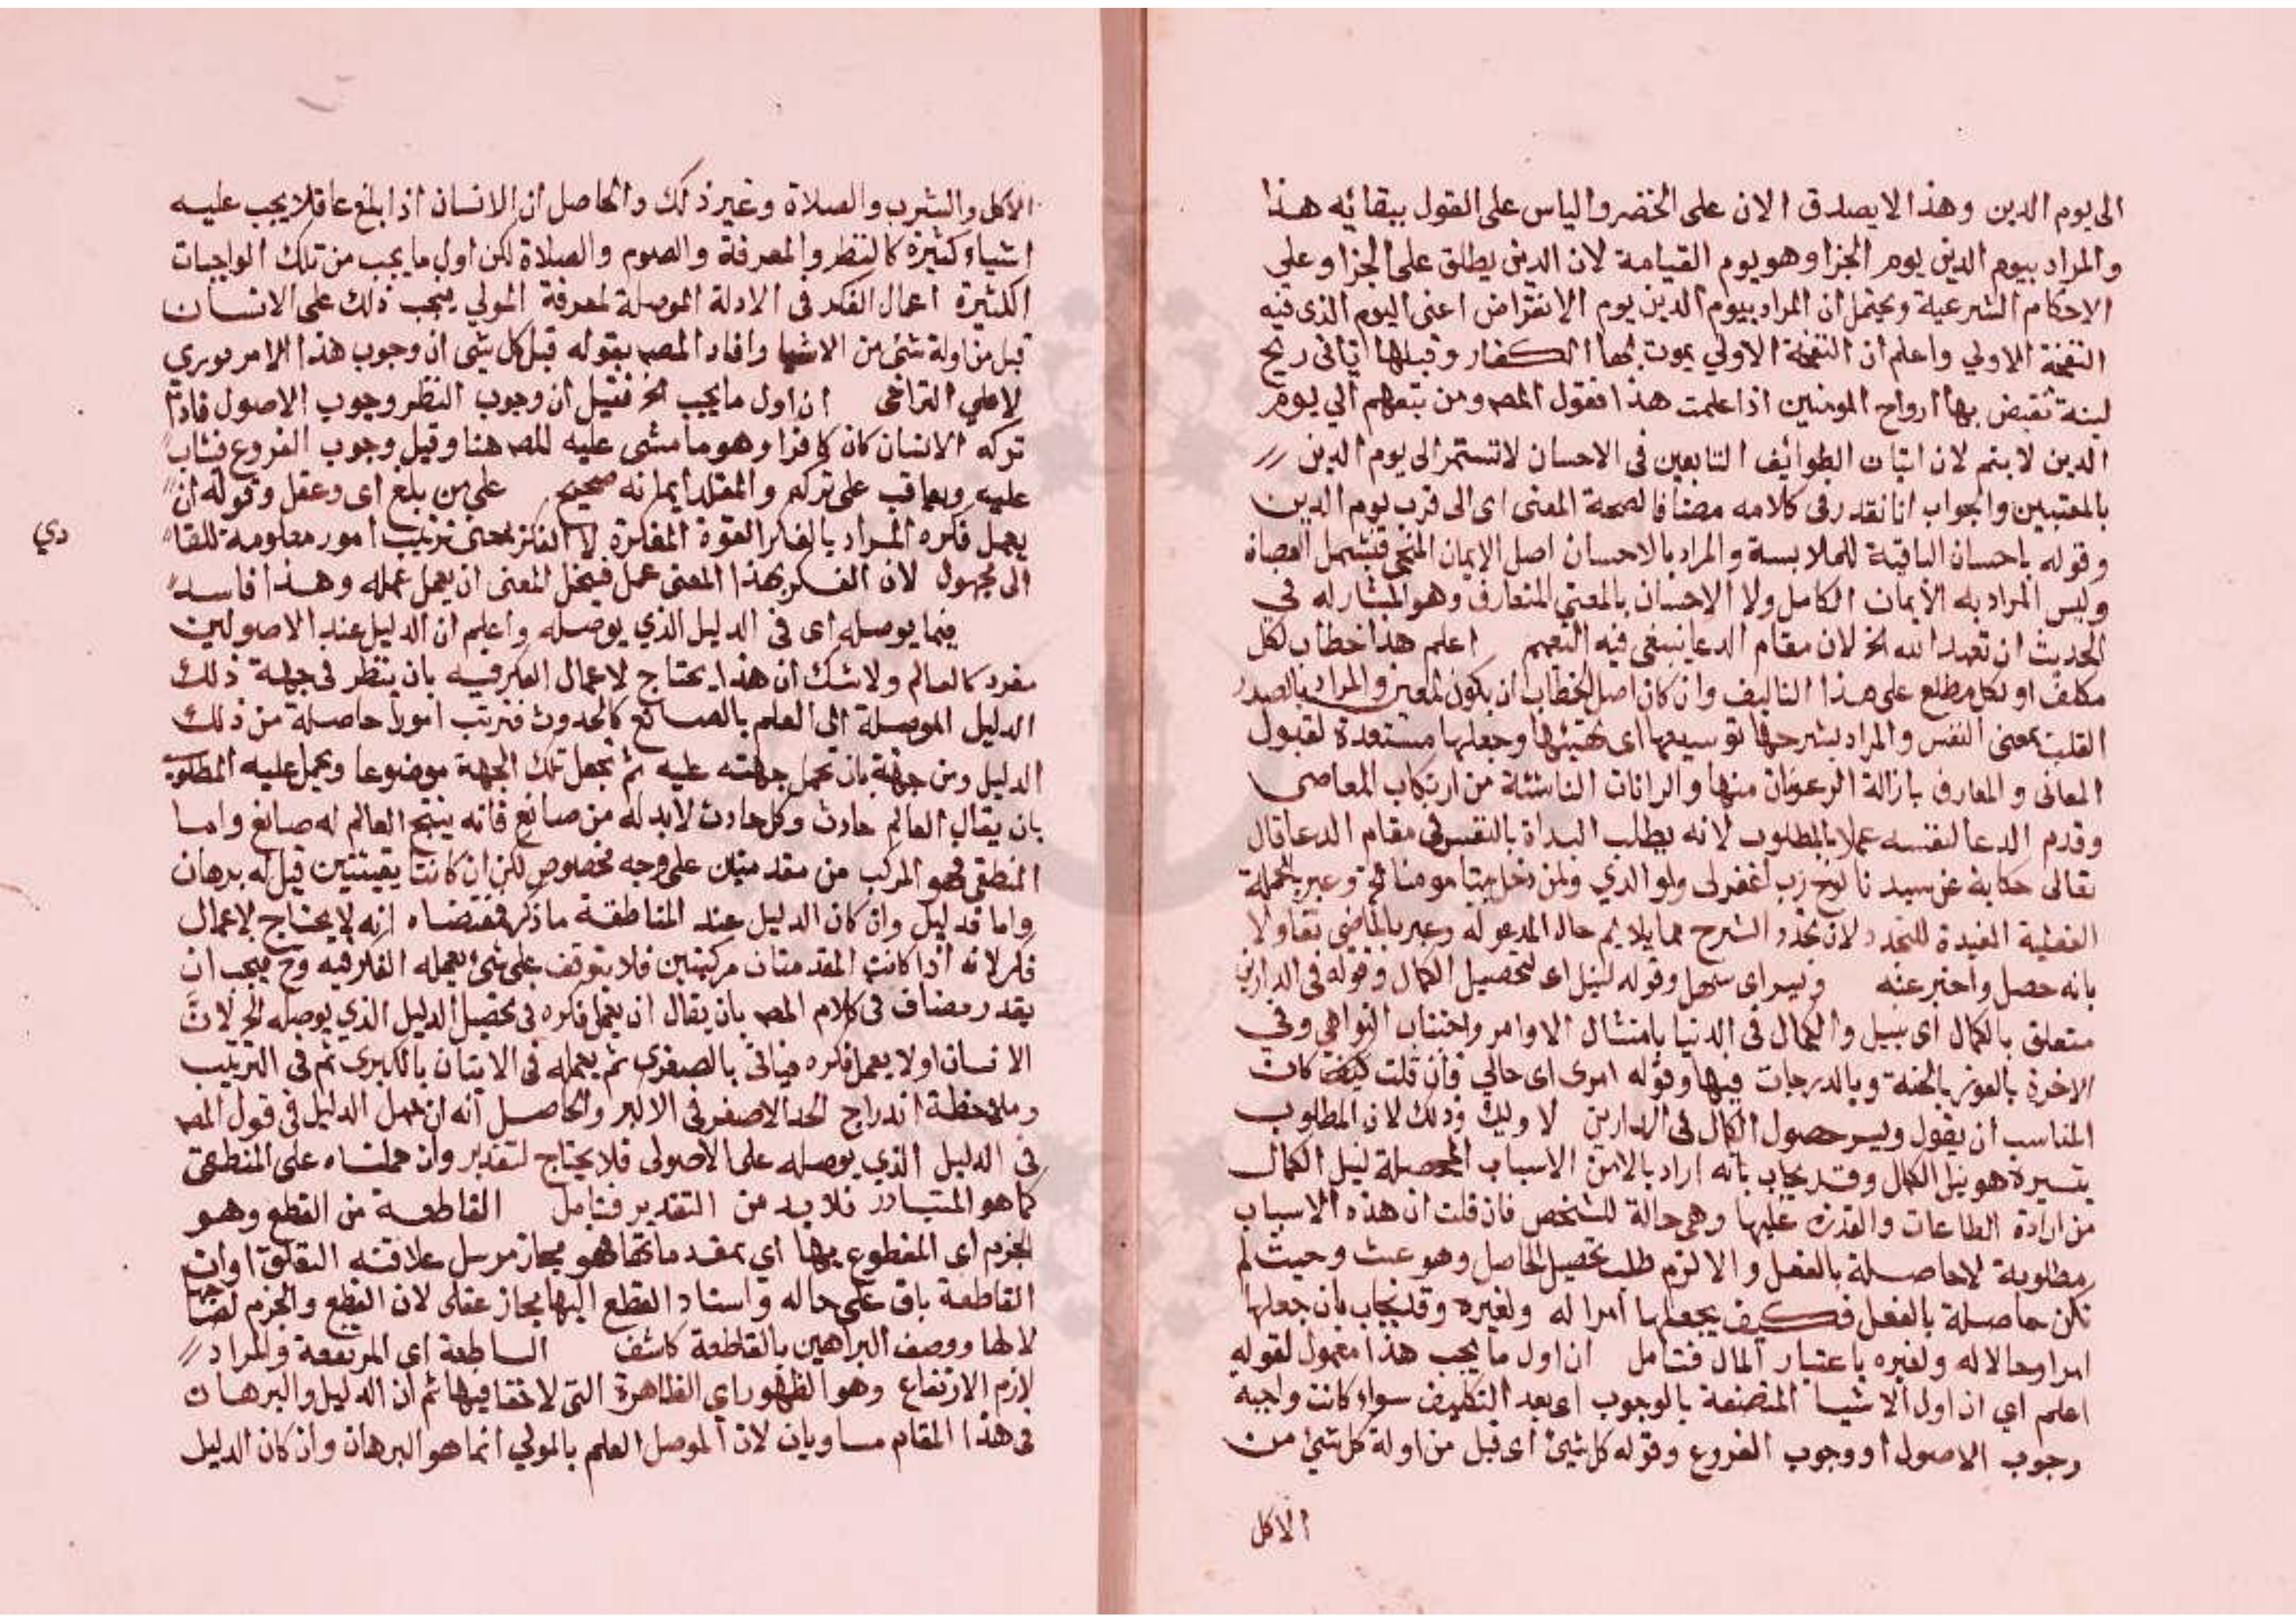 الى يوم الدين وهذا لا يصدق الان على الخضر والياس على القول ببقائه هذا
والمراد بيوم الدين يوم الجزا وهو يوم القيامة لان الدين يطلق على الجزا وعلى
الاحكام الشرعية ويحتمل ان المراد بيوم الدين يوم الانقراض اعنى اليوم الذى فيه
النفخة الاولي واعلم ان النفخة الاولي يموت بها الكفار وقبلها تاتى ريح
لينة تقبض بها ارواح المومنين اذا علمت هذا فقول المصه ومن تبعهم الي يوم
الدين لا يتم لان اتيان الطوائف التابعين فى الاحسان لا تستمر الى يوم الدين
بالمعتبين والجواب انا نقدر فى كلامه مضافا لصحة المعنى اى الى قرب يوم الدين
وقوله باحسان الباقية للملابسة والمراد بالاحسان اصل الايمان المنجى فيشمل العصاة
وليس المراد به الايمان الكامل ولا الاحسان بالمعنى المتعارف وهو المشار له في
الحديث ان تعبد الله الخ لان مقام الدعا ينبغى فيه التعميم اعلم هذا خطاب لكل
مكلف او لكل مطلع على هذا التاليف وان كان اصل الخطاب ان يكون لمعين والمراد بالصدر
القلب بمعنى النفس والمراد بشرحها توسيعها اى تهيئتها وجعلها مستعدة لقبول
المعانى والمعارف بازالة الرعونات منها والرانات الناشئة من ارتكاب المعاصى
وقدم الدعا لنفسه عملا بالمطلوب لانه يطلب البداة بالنفس فى مقام الدعا قال
تعالى حكاية عن سيدنا نوح رب اغفر لى ولوالدي ولمن دخل بيتى مومنا الخ وعبر بالجملة
الفعلية المفيدة للتجدد لان تجدد الشرح مما يلايم حال المدعو له وعبر بالماضى تفاولا
بانه حصل واخبر عنه ويسر اى سهل وقوله لنيل اى لتحصيل الكمال وقوله فى الدارين
متعلق بالكمال اى بنيل والكمال فى الدنيا بامتثال الاوامر واجتناب النواهي وفي
الاخرة بالفوز بالجنة وبالدرجات فيها وقوله امرى اى حالي فان قلت كيف كان
المناسب ان يقول ويسر حصول الكمال فى الدارين لا وليك وذلك لان المطلوب
تيسيره هو نيل الكمال وقد يجاب بانه اراد بالامر الاسباب المحصلة لنيل الكمال
من ارادة الطاعات والقدرة عليها وهى حالة للشخص فان قلت ان هذه الاسباب
مطلوبة لا حاصلة بالفعل والا لزم طلب تحصيل الحاصل وهو عبث وحيث لم
تكن حاصلة بالفعل فكيف يجعلها امرا له ولغيره وقد يجاب بان جعلها
امرا وحالا له ولغيره باعتبار المال فتامل ان اول ما يجب هذا معمول لقوله
اعلم اي ان اول الاشيا المتصفة بالوجوب اى بعد التكليف سواء كانت واجبة
وجوب الاصول او وجوب الفروع وقوله كل شيئ اى قبل مزاولة كل شيئ من
الاكل
الاكل والشرب والصلاة وغير ذلك والحاصل ان الانسان اذا بلغ عاقلا يجب عليه
اشياء كثيرة كالنظر والمعرفة والصوم والصلاة لكن اول ما يجب من تلك الواجبات
الكثيرة اعمال الفكر فى الادلة الموصلة لمعرفة المولي فيجب ذلك على الانسان
قبل مزاولة شئ من الاشيا وافاد المصه بقوله قبل كل شى ان وجوب هذا الامر فوري
لا علي التراخى ان اول ما يجب الخ فقيل ان وجوب النظر وجوب الاصول فاذا
تركه الانسان كان كافرا وهو ما مشى عليه المصه هنا وقيل وجوب الفروع فيثاب
عليه ويعاقب على تركه والمقلد ايمانه صحيح على من بلغ اى وعقل وقوله ان
يعمل فكره المراد بالفكر القوة المفكرة لا الفكر بمعنى ترتيب امور معلومة للتا
دي
الى مجهول لان الفكر بهذا المعنى عمل فينحل المعنى ان يعمل عمله وهذا فاسد
فيما يوصله اى فى الدليل الذي يوصله واعلم ان الدليل عند الاصولين
مفرد كالعالم ولا شك ان هذا يحتاج لاعمال الفكر فيه بان ينظر فى جهة ذلك
الدليل الموصلة الى العلم بالصانع كالحدوث فترتب امورا حاصلة من ذلك
الدليل ومن جهته بان تحمل جهته عليه ثم تجعل تلك الجهة موضوعا ويحمل عليه المطلوب
بان يقال العالم حادث وكل حادث لابد له من صانع فانه ينتج العالم له صانع واما
المنطقى فهو المركب من مقدمتين على وجه مخصوص لكن ان كانتا يقينيتين قيل له برهان
واما قد ليل وان كان الدليل عند المناطقة ما ذكر فمقتضاه انه لا يحتاج لاعمال
فكر لانه اذا كانت المقدمتان مركبتين فلا يتوقف على شئ يعمله الفكر فيه وح فيجب ان
يقدر مضاف فى كلام المصه بان يقال ان يعمل فكره فى تحصيل الدليل الذي يوصله الخ لان
الانسان اولا يعمل فكره فياتى بالصغرى ثم يعمله فى الاتيان بالكبرى ثم فى الترتيب
وملاحظة اندراج الحد الاصغر فى الاكبر والحاصل انه ان حمل الدليل فى قول المصه
فى الدليل الذي يوصله على الاصولى فلا يحتاج لتقدير وان حملناه على المنطقى
كما هو المتبادر فلا بد من التقدير فتامل القاطعة من القطع وهو
الجزم اى المقطوع بها اي بمقدماتها فهو مجاز مرسل علاقته التعلق او ان
القاطعة باق على حاله واسناد القطع اليها مجاز عقلى لان القطع والجزم لصاحبها
لا لها ووصف البراهين بالقاطعة كاشف الساطعة اى المرتفعة والمراد
لازم الارتفاع وهو الظهور اى الظاهرة التى لا خفا فيها ثم ان الدليل والبرهان
فى هذا المقام مساويان لان الموصل العلم بالمولي انما هو البرهان وان كان الدليل